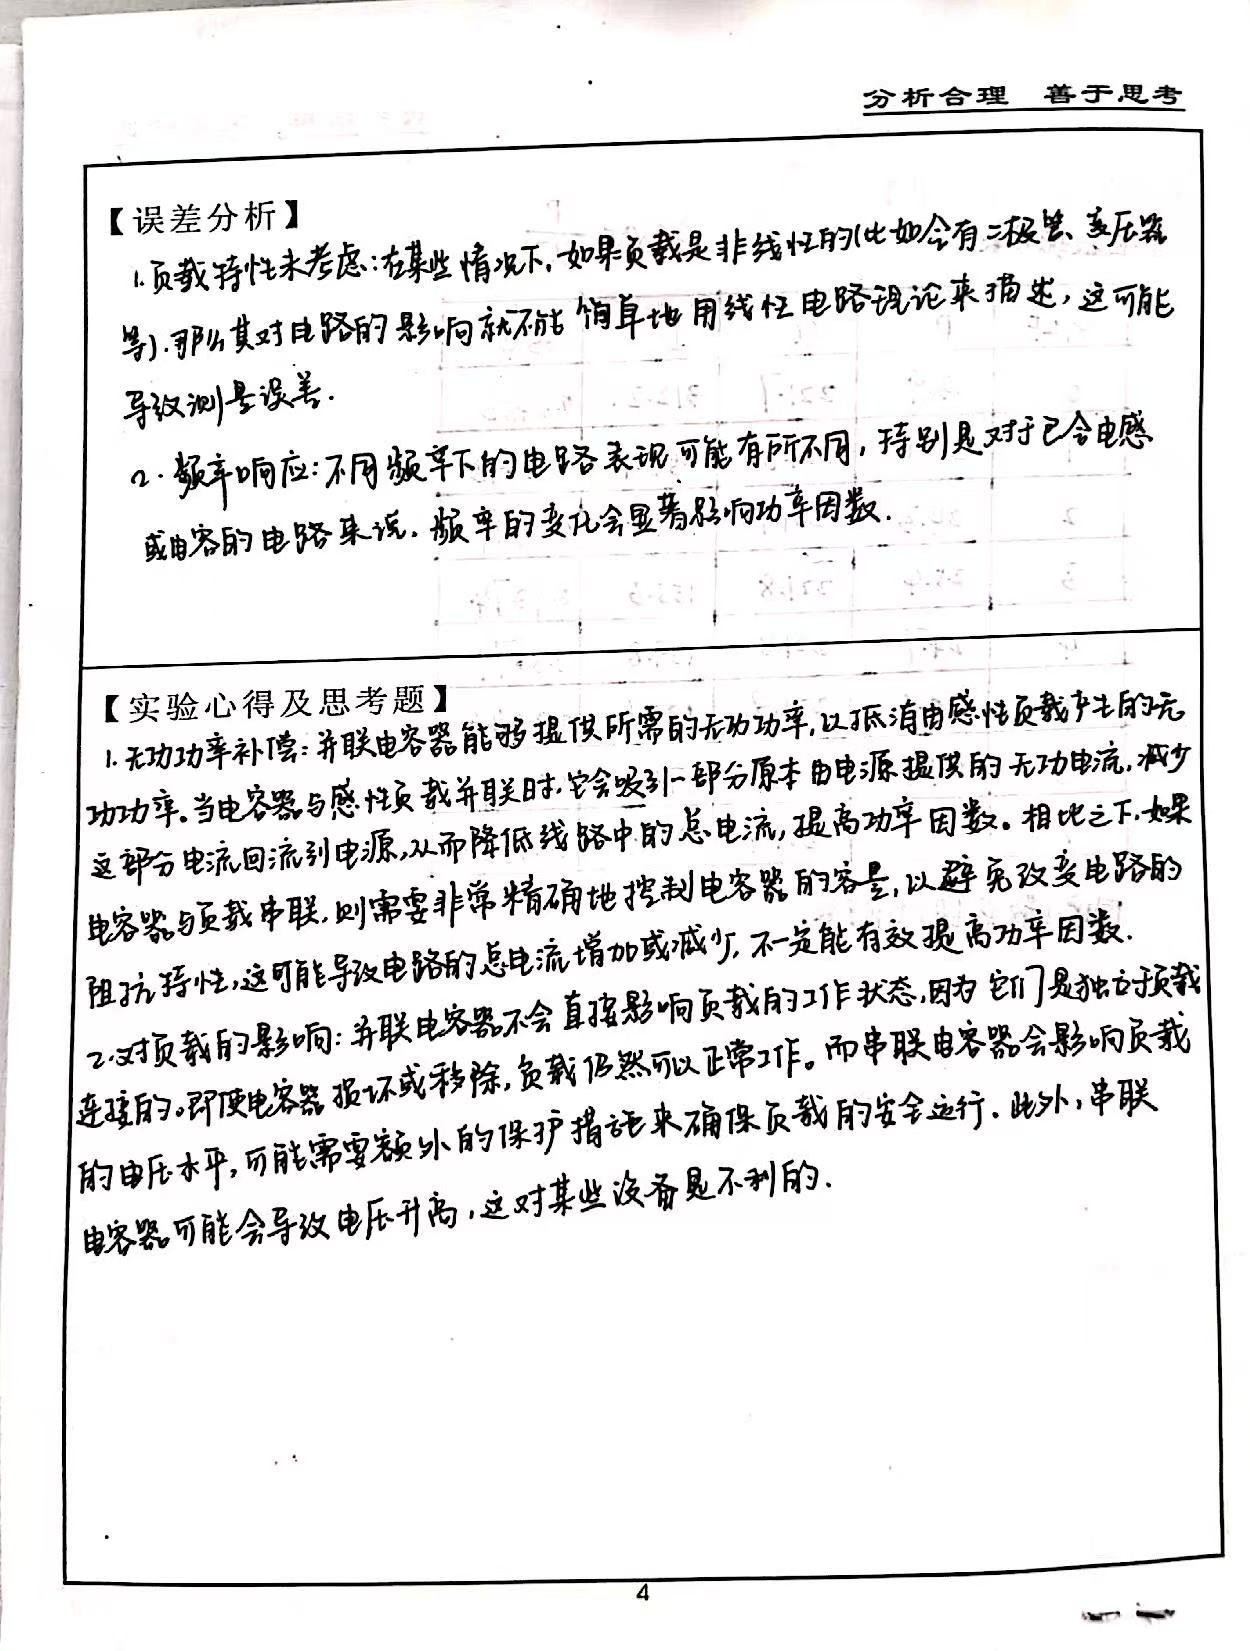 分析合理 善于思考
【误差分析】
1.负载特性未考虑:在某些情况下,如果负载是非线性的(比如含有二极管、变压器
等).那么其对电路的影响就不能简单地用线性电路理论来描述,这可能
导致测量误差.
2.频率响应:不同频率下的电路表现可能有所不同,特别是对于已含电感
或电容的电路来说.频率的变化会显著影响功率因数.
【实验心得及思考题】
1.无功功率补偿:并联电容器能够提供所需的无功功率,以抵消由感性负载产生的无
功功率。当电容器与感性负载并联时,它会吸引一部分原本由电源提供的无功电流,减少
这部分电流回流到电源,从而降低线路中的总电流,提高功率因数。相比之下,如果
电容器与负载串联,则需要非常精确地控制电容器的容量,以避免改变电路的
阻抗特性,这可能导致电路的总电流增加或减少,不一定能有效提高功率因数.
2.对负载的影响:并联电容器不会直接影响负载的工作状态,因为它们是独立于负载
连接的。即使电容器损坏或移除,负载仍然可以正常工作。而串联电容器会影响负载
的电压水平,可能需要额外的保护措施来确保负载的安全运行.此外,串联
电容器可能会导致电压升高,这对某些设备是不利的.
4